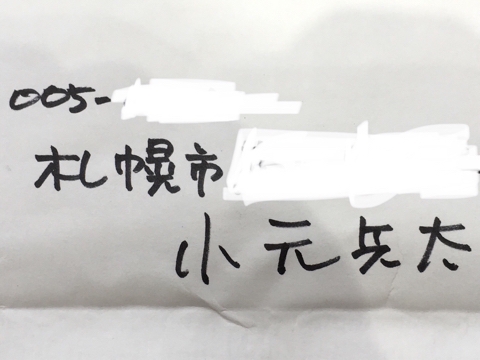 005-
札幌市
小元兵太